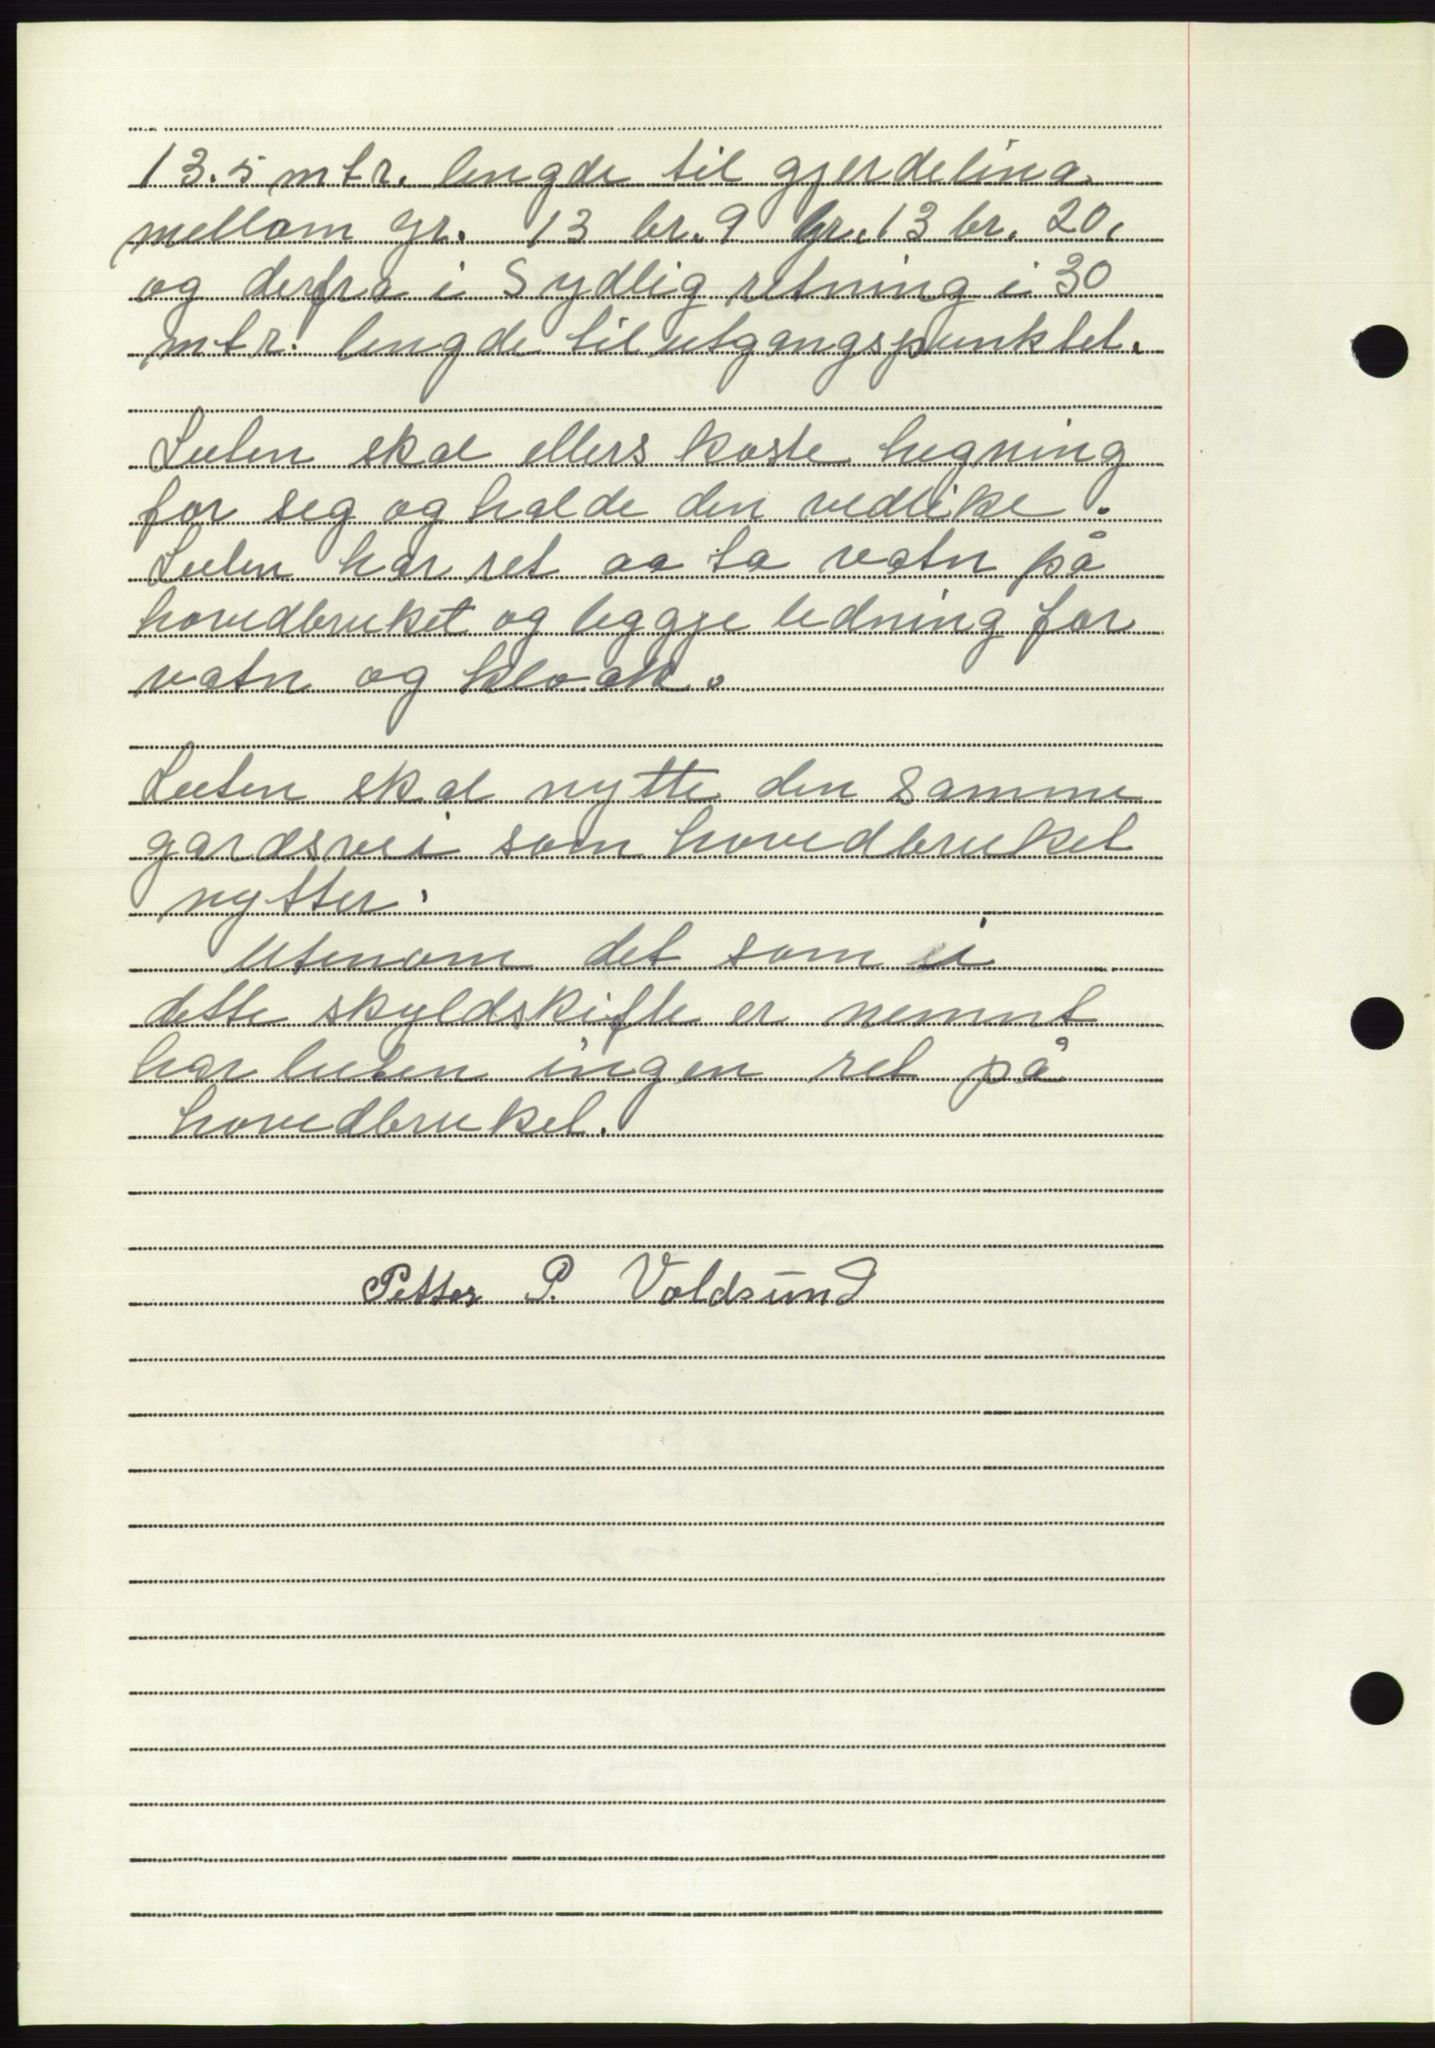 13.5 mtr. lengde til gjerdelina
mellom gr. 13 br. 9 gr. 13 br. 20,
og derfra i Sydlig retning i 30
mtr. lengde til utgangspunktet.
Luten skal ellers koste hegning
for seg og halde den vedlike.
Luten har ret aa ta vatn på
hovedbruket og leggje ledning for
vatn og kloak.
Luten skal nytte den samme
gardsvei som hovedbruket
nytter.
Utenom det som i
dette skyldskifte er nemnt
har luten ingen ret på
hovedbruket.
Petter P. Voldsund